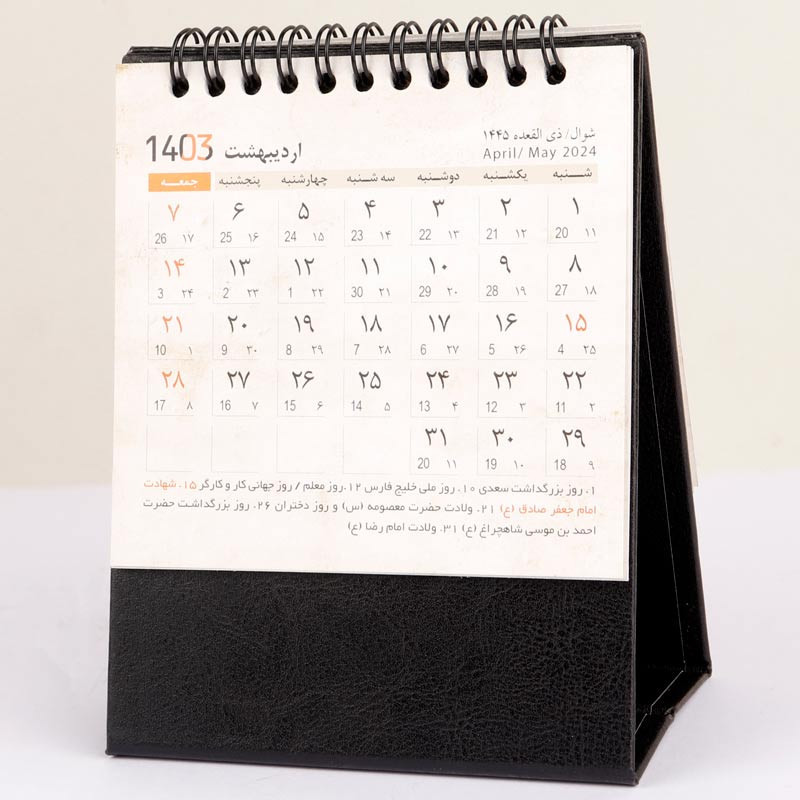 اردیبهشت 1403
شوال/ ذی القعده ۱۴۴۵
April/ May 2024
شـــنبه یکشـنبه دوشــنبه سه شـنبه چهارشنبه پنجشنبه جمعــه
۱ ۲ ۳ ۴ ۵ ۶ ۷
20 ۱۱ 21 ۱۲ 22 ۱۳ 23 ۱۴ 24 ۱۵ 25 ۱۶ 26 ۱۷
۸ ۹ ۱۰ ۱۱ ۱۲ ۱۳ ۱۴
27 ۱۸ 28 ۱۹ 29 ۲۰ 30 ۲۱ 1 ۲۲ 2 ۲۳ 3 ۲۴
۱۵ ۱۶ ۱۷ ۱۸ ۱۹ ۲۰ ۲۱
4 ۲۵ 5 ۲۶ 6 ۲۷ 7 ۲۸ 8 ۲۹ 9 ۳۰ 10 ۱
۲۲ ۲۳ ۲۴ ۲۵ ۲۶ ۲۷ ۲۸
11 ۲ 12 ۳ 13 ۴ 14 ۵ 15 ۶ 16 ۷ 17 ۸
۲۹ ۳۰ ۳۱
18 ۹ 19 ۱۰ 20 ۱۱
۱. روز بزرگداشت سعدی ۱۰. روز ملی خلیج فارس ۱۲.روز معلم / روز جهانی کار و کارگر ۱۵. شهادت
امام جعفر صادق (ع) ۲۱. ولادت حضرت معصومه (س) و روز دختران ۲۶. روز بزرگداشت حضرت
احمد بن موسی شاهچراغ (ع) ۳۱. ولادت امام رضا (ع)